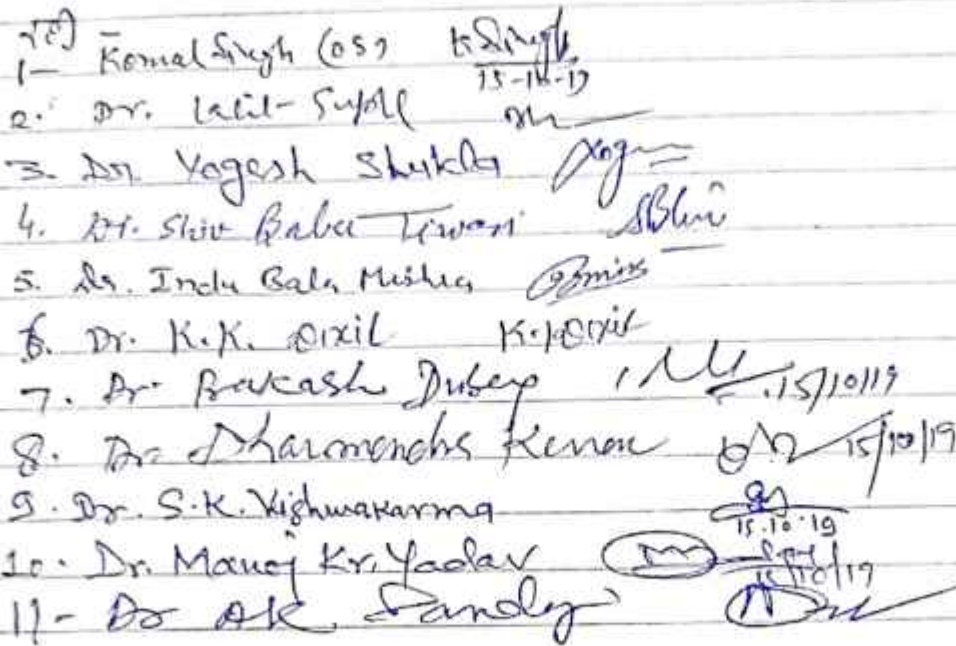 1- Komal Singh (OS) K Singh
15-10-19
2. Dr. Lalit
3. Dr. Yogesh Shukla Yog
4. Dr. Shiv Babu Tiwari
5. Dr. Indu Bala Mishra
6. Dr. K.K. Dixit K.K.Dixit
7. Dr. Prakash Dubey 15/10/19
8. Dr. Dharmendra Kumar 15/10/19
9. Dr. S.K. Vishwakarma
15.10.19
10. Dr. Manoj Kr. Yadav
15/10/19
11- Dr AK Pandey